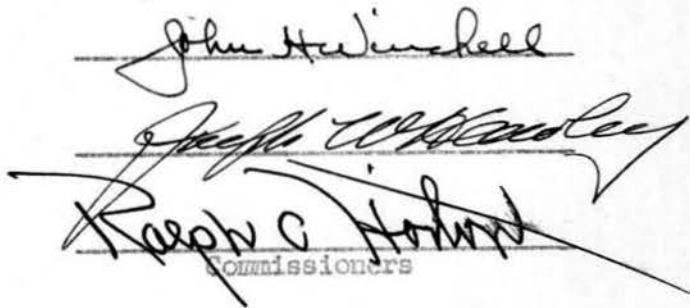 John H Winchell
Joseph W Hawley
Ralph C Horton
Commissioners